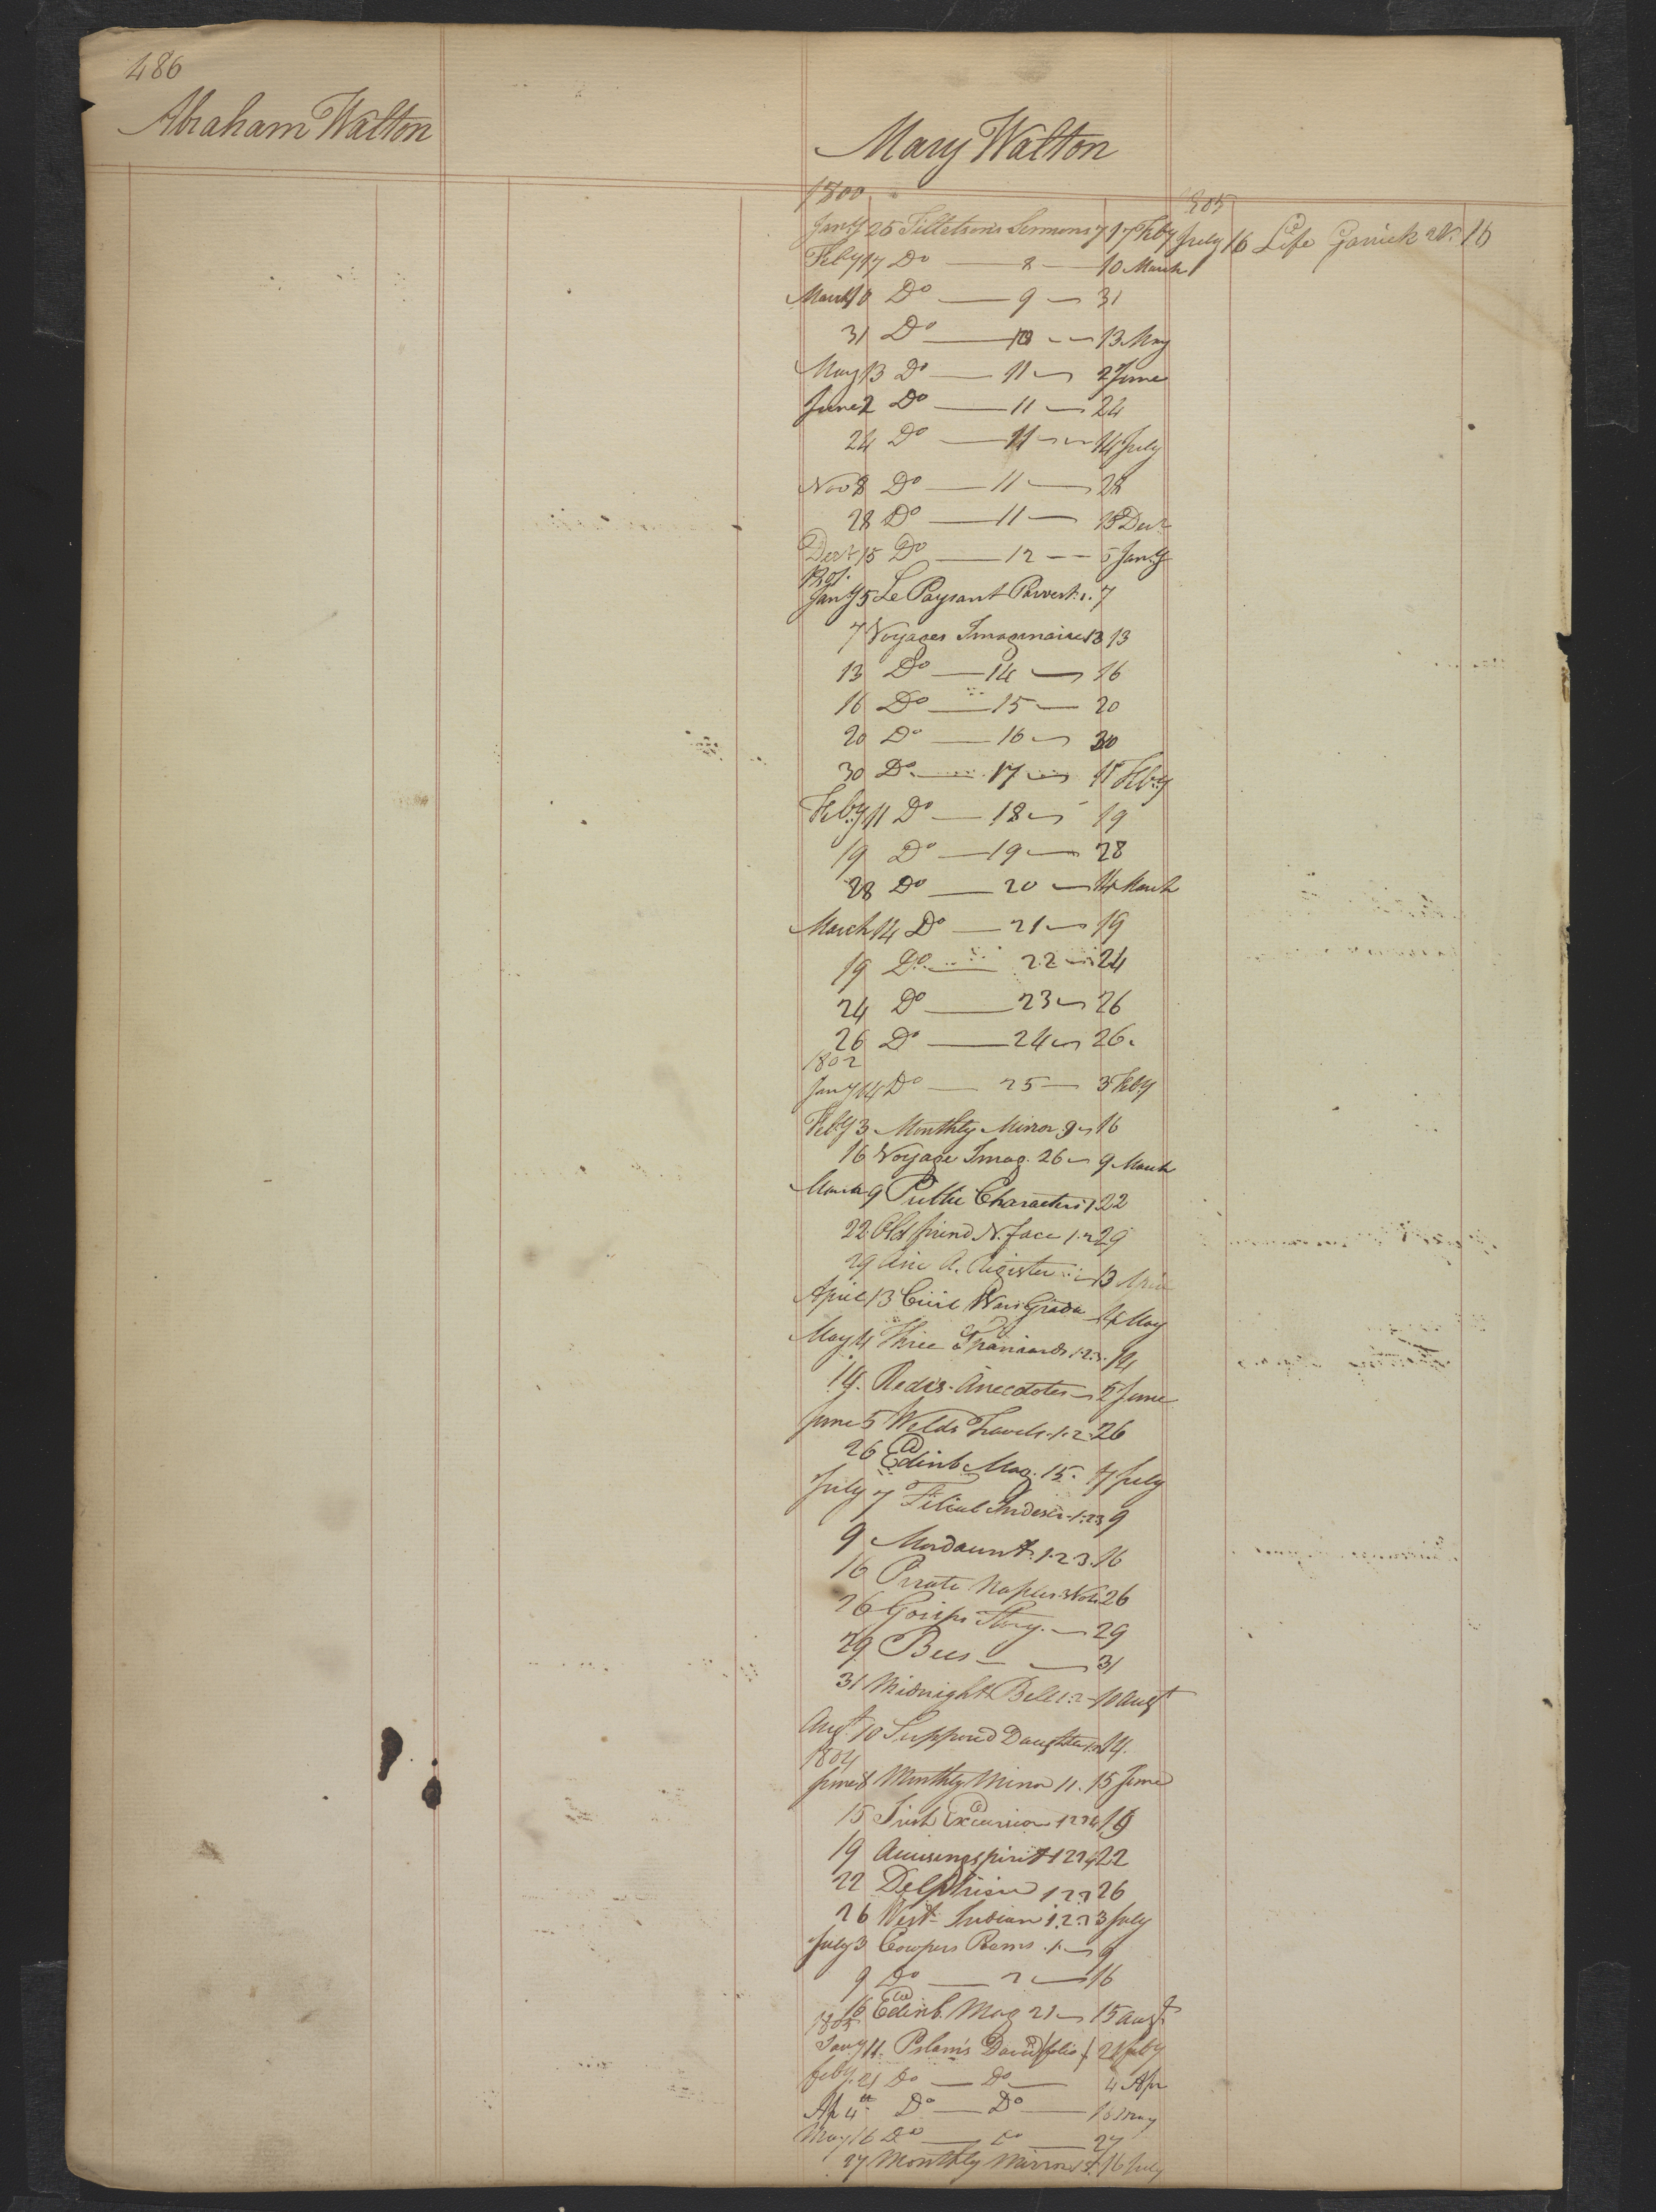 486
Abraham Walton
Mary Walton
1800
Jany 25 Tilletson's Sermons 7 17 Feby
Feby 17 Do — 8 — 10 March
March 10 Do — 9 — 31
31 Do — 10 — 13 May
May 13 Do — 11 — 2 June
June 2 Do — 11 — 24
24 Do — 11 — 14 July
Nov 8 Do — 11 — 28
28 Do — 11 — 15 Decr
Decr 15 Do — 12 — 5 Jany
1801
Jany 5 Le Paysant Parvert. 1. 7
7 Voyages Imaginaires 13 13
13 Do — 14 — 16
16 Do — 15 — 20
20 Do — 16 — 30
30 Do — 17 — 11 Feby
Feby 11 Do — 18 — 19
19 Do — 19 — 28
28 Do — 20 — 14 March
March 14 Do — 21 — 19
19 Do — 22 — 24
24 Do — 23 — 26
26 Do — 24 — 26.
1802
Jany 14 Do — 25 — 3 Feby
Feby 3 Monthly Mirror 9 — 16
16 Voyage Imag. 26 — 9 March
March 9 Public Characters 1 22
22 Old friend N. face 1.2 29
29 A. Register — 13 April
April 13 Civil Wars Grada — 4 May
May 4 Three Spaniards 1.2.3. 14
14. Anecdotes — 5 June
June 5 Welds Travels. 1.2. 26
26 Edinb Mag. 15. 7 July
July 7 Filial Indescr. 1.2.3 9
9 Mordaunt. 1.2.3. 16
16 Pirate Naples 3 Vols 26
26 Gosips Story. — 29
29 Bees — — 31
31 Midnight Bell 1.2 — 10 Augt
Augt. 10 Supposed Daughter 14.
1804
June 8 Monthly Mirror 11. 15 June
15 Irish Excursion 1234 19
19 spirit 1234 22
22 Delphine 1 2 3 26
26 West Indian 1.2.3 July
July 3 Cowpers Poems. 1. — 9
9 Do — 2 — 16
16 Edinb. Mag 21 — 15 Augt
1805
Jany 11. Pslams David (folio) 21 feby
feby. 21 Do — Do — 4 Apr
Ap 4th Do — Do — 16 May
May 16 Do — Do — 27
27 Monthly Mirror 5. 16 July
1805
July 16 Life Garrick 2V. 16